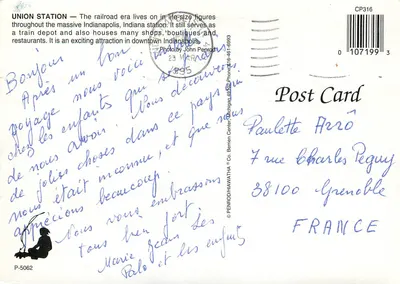 UNION STATION — The railroad era lives on in life-size figures
throughout the massive Indianapolis, Indiana station. It still serves as
a train depot and also houses many shops, boutiques and
restaurants. It is an exciting attraction in downtown Indianapolis.
Photo by John Penrod
1995
Bonjour
Après un bon
voyage nous voici
chez les enfants qui
de nous avoir. Nous découvrons
de jolies choses dans ce pays qui
nous était inconnue, et que nous
apprécions beaucoup.
Nous vous embrassons
tous bien fort.
Marie Jean Les
Palo et les enfants
P-5062
© PENROD/HIAWATHA
CP316
0 107199 3
Post Card
Paulette Azrô
7 rue Charles Peguy
38100 Grenoble
FRANCE